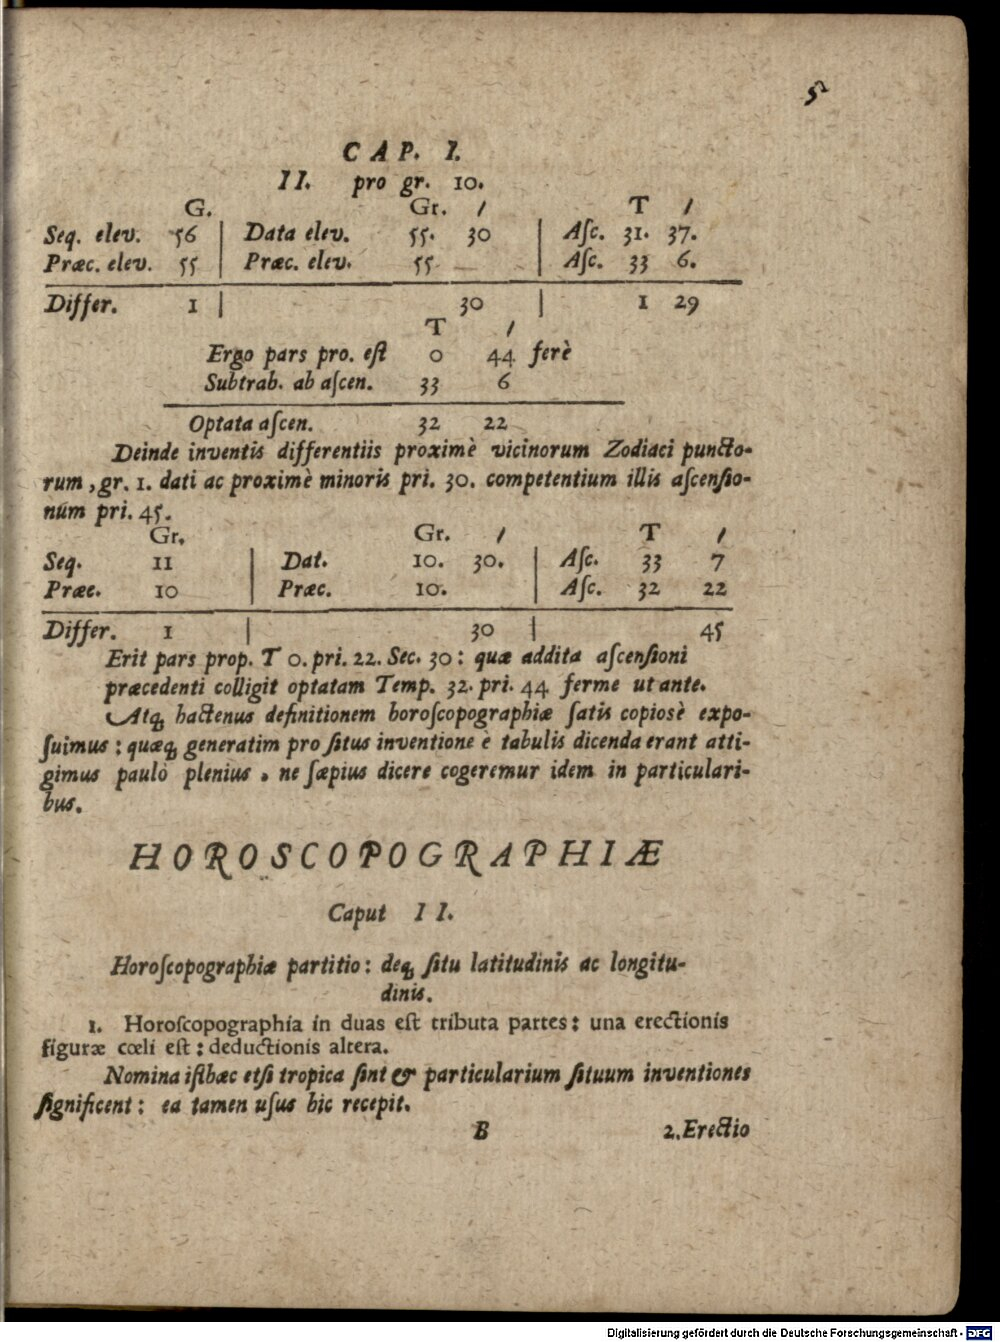 51
CAP. I.
II. pro gr. 10.
G. Gr. / T /
Seq. elev. 56 | Data elev. 55. 30 | Aſc. 31. 37.
Præc. elev. 55 | Præc. elev. 55 | Aſc. 33 6.
Differ. 1 | 30 | 1 29
T /
Ergo pars pro. eſt 0 44 ferè
Subtrab. ab aſcen. 33 6
Optata aſcen. 32 22
Deinde inventis differentiis proximè vicinorum Zodiaci puncto-
rum, gr. 1. dati ac proximè minoris pri. 30. competentium illis aſcenſio-
num pri. 45.
Gr. Gr. / T /
Seq. 11 | Dat. 10. 30. | Aſc. 33 7
Præc. 10 | Præc. 10. | Aſc. 32 22
Differ. 1 | 30 | 45
Erit pars prop. T 0. pri. 22. Sec. 30: quæ addita aſcenſioni
præcedenti colligit optatam Temp. 32. pri. 44 ferme ut ante.
Atq; hactenus definitionem horoſcopographiæ ſatis copiosè expo-
ſuimus: quæq; generatim pro ſitus inventione è tabulis dicenda erant atti-
gimus paulò plenius. ne ſæpius dicere cogeremur idem in particulari-
bus.
HOROSCOPOGRAPHIÆ
Caput II.
Horoſcopographiæ partitio: deq; ſitu latitudinis ac longitu-
dinis.
1. Horoſcopographia in duas eſt tributa partes: una erectionis
figuræ cœli eſt: deductionis altera.
Nomina iſthæc etſi tropica ſint & particularium ſituum inventiones
ſignificent: ea tamen uſus hic recepit.
B 2. Erectio
Digitalisierung gefördert durch die Deutsche Forschungsgemeinschaft - DFG